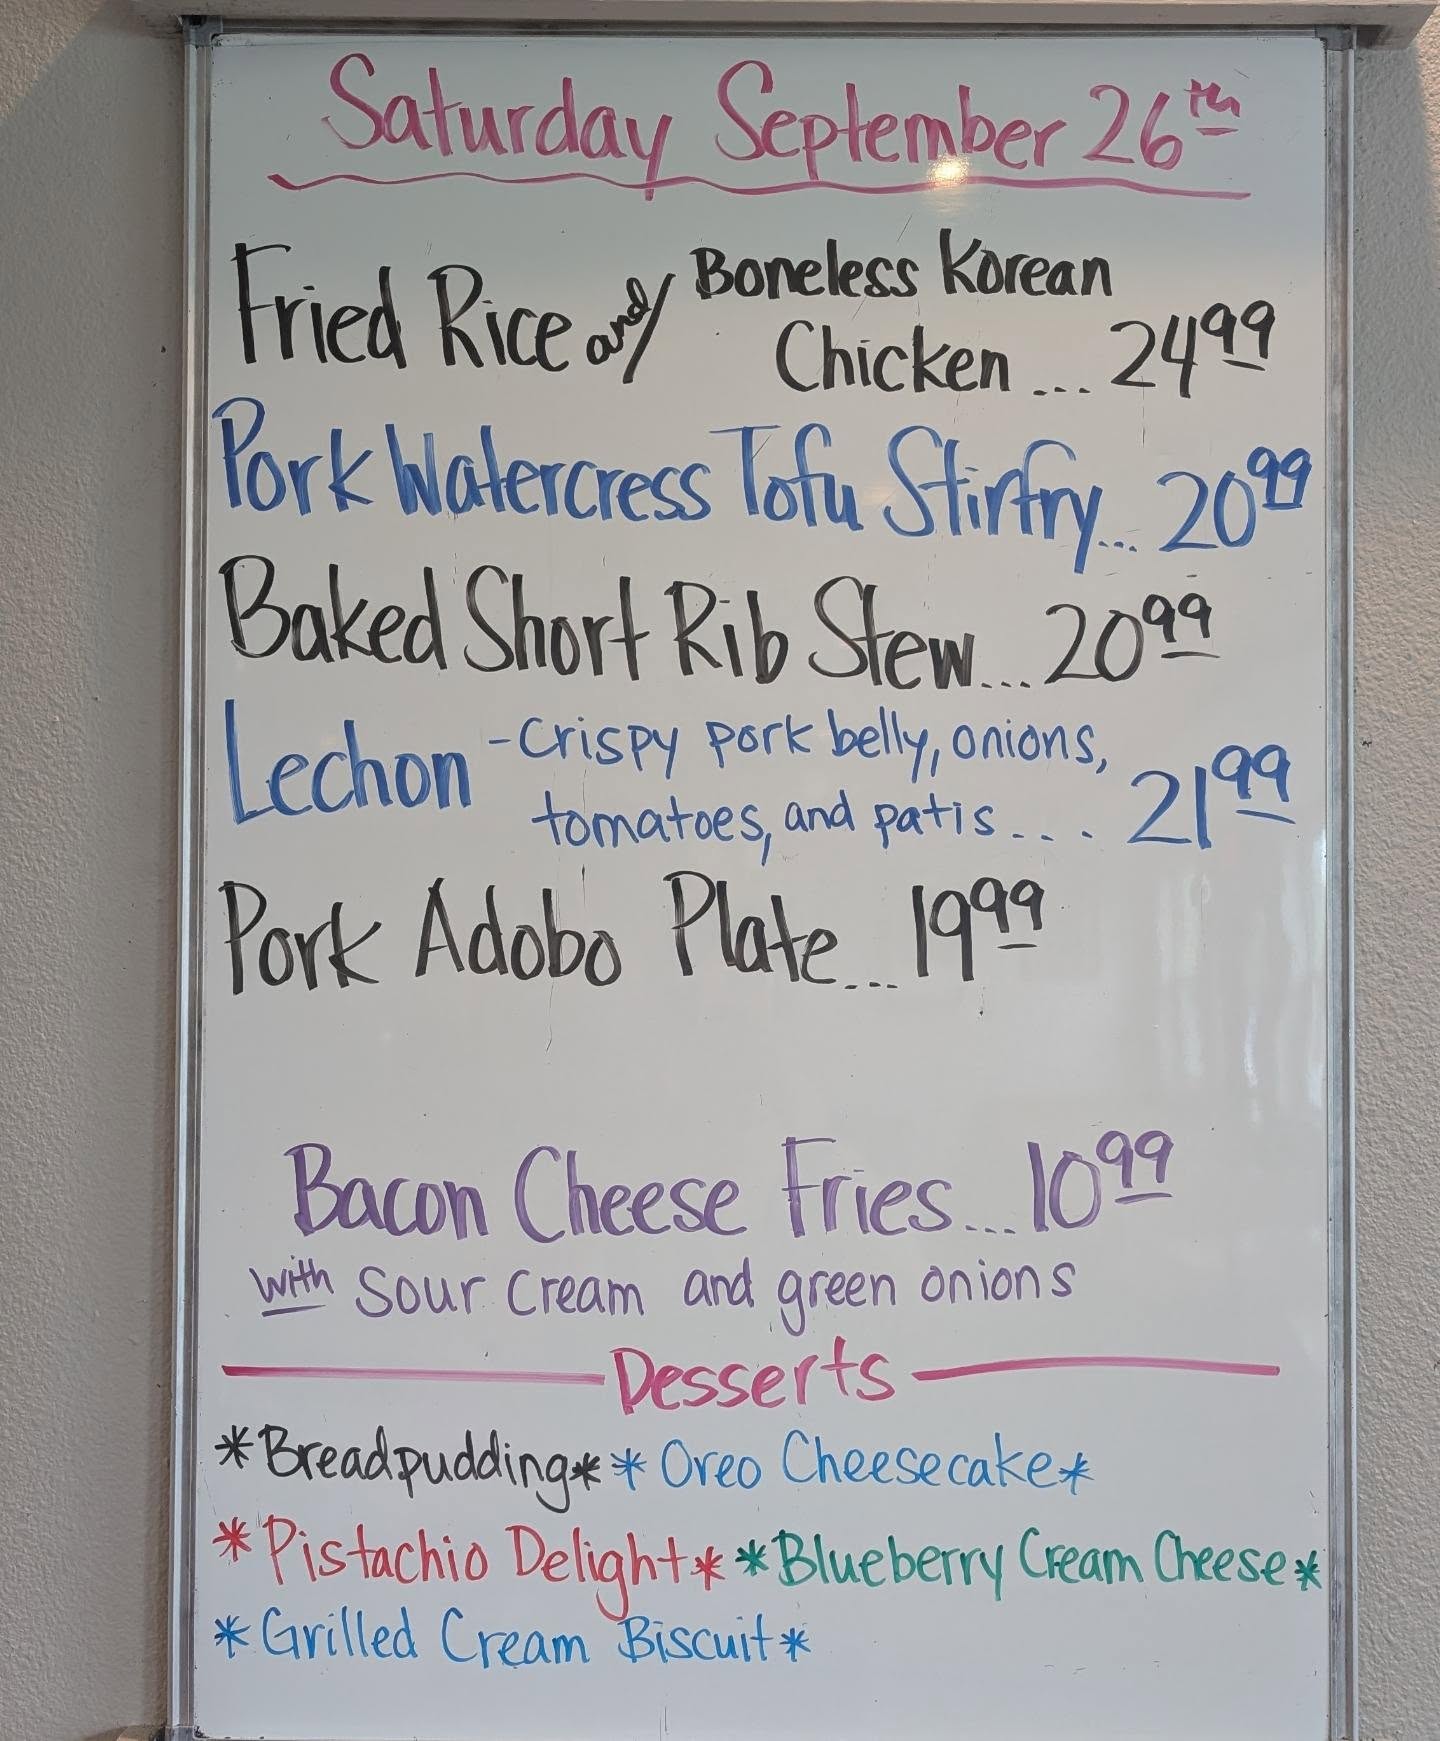 Saturday September 26th
Fried Rice and/ Boneless Korean
Chicken ... 24 99
Pork Watercress Tofu Stirfry... 20 99
Baked Short Rib Stew... 20 99
Lechon - Crispy pork belly, onions,
tomatoes, and patis .... 21 99
Pork Adobo Plate... 19 99
Bacon Cheese Fries... 10 99
with sour cream and green onions
Desserts
*Breadpudding* *Oreo Cheesecake*
*Pistachio Delight* *Blueberry Cream Cheese*
*Grilled Cream Biscuit*